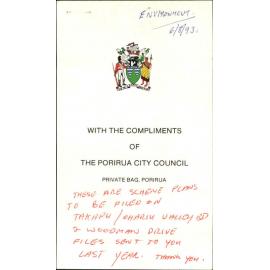 ENVIRONMENT
6/8/93.
WITH THE COMPLIMENTS
OF
THE PORIRUA CITY COUNCIL
PRIVATE BAG, PORIRUA
THESE ARE SCHEME PLANS
TO BE FILED ON
TAKAPU / OHARIU VALLEY RD
& WOODMAN DRIVE
FILES SENT TO YOU
LAST YEAR. THANK YOU.